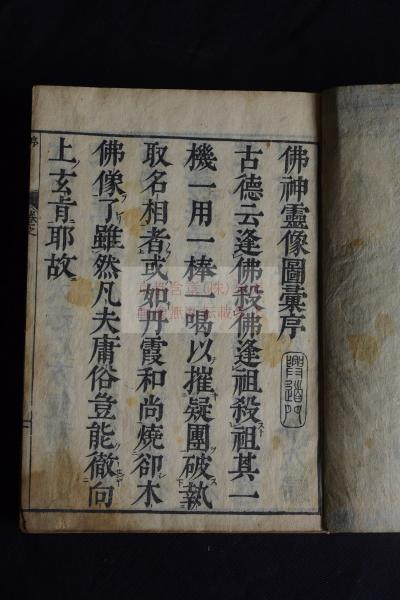 佛神靈像圖彙序
古德云逢佛殺佛逢祖殺祖其一
機一用一棒一喝以摧疑團破執
取名相者或如丹霞和尚燒卻木
佛像了雖然凡夫庸俗豈能徹向
上玄肯耶故
序